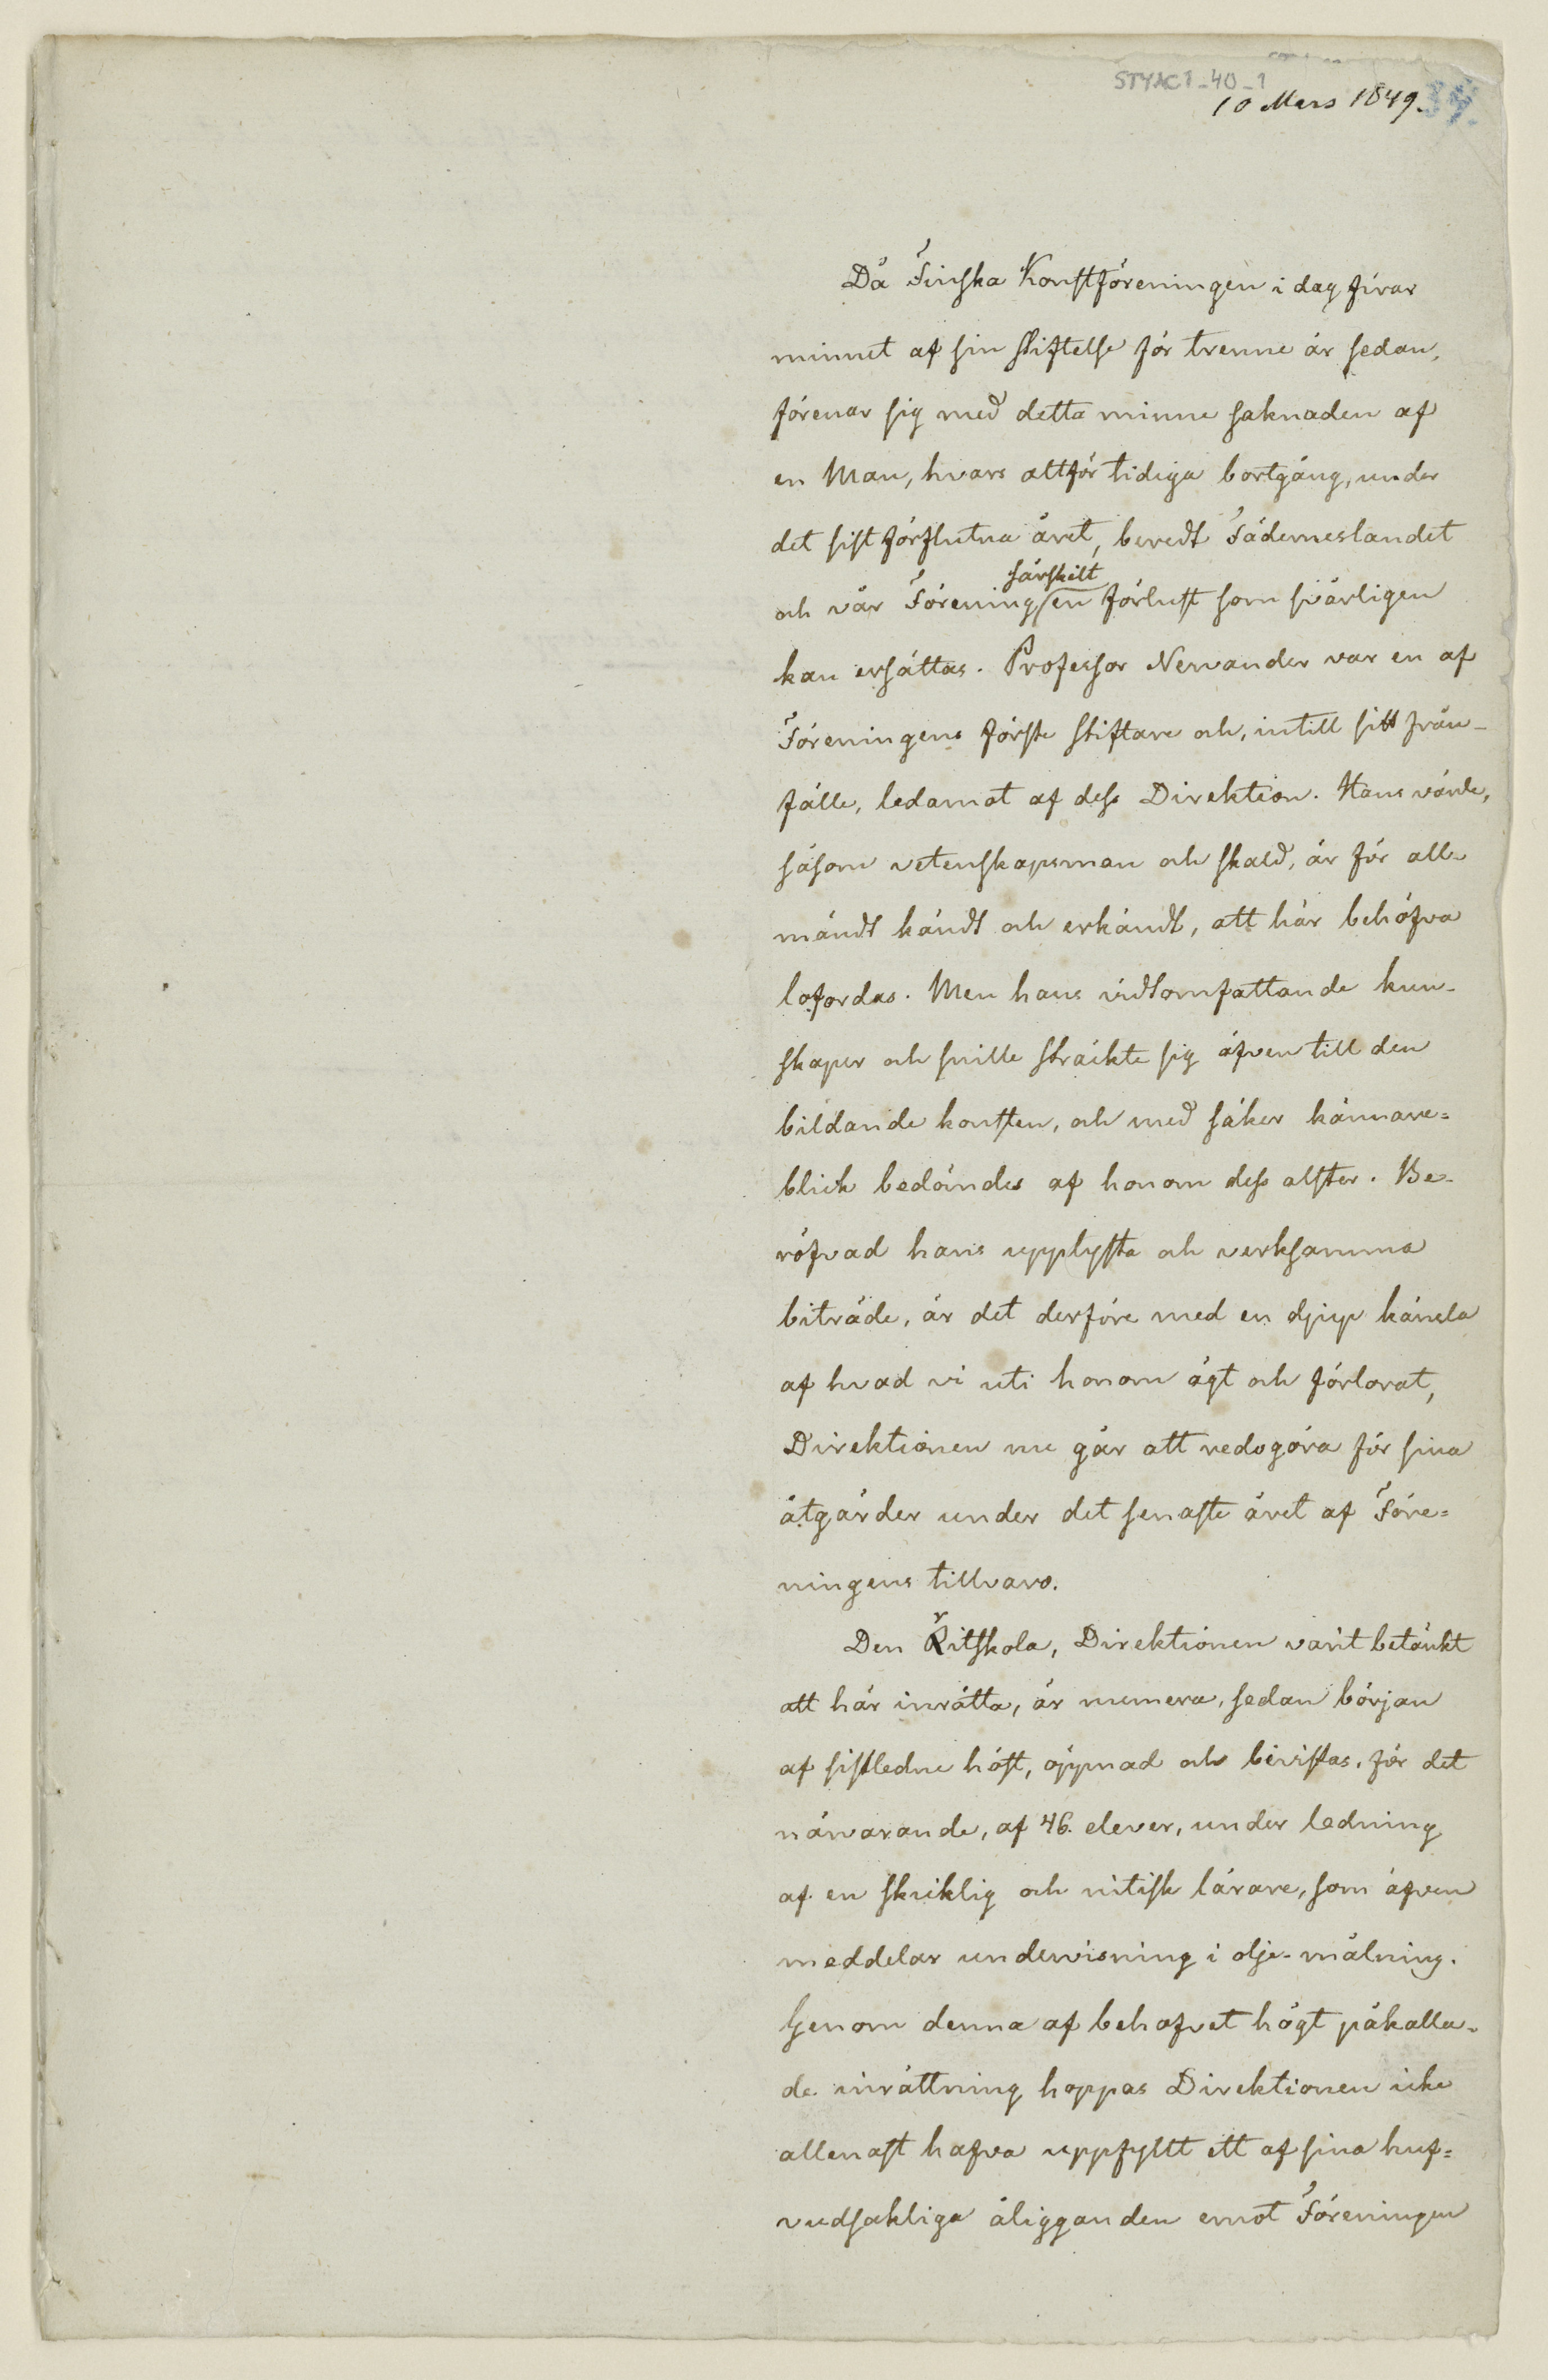 STYAC1_40_1
10 Mars 1849.
Då Finska Konstföreningen i dag firar
minnet af sin stiftelse för trenne år sedan,
förenar sig med detta minne saknaden af
en Man, hvars alltför tidiga bortgång, under
det sist förflutna året, beredt Fäderneslandet
särskilt
och vår Förening en förlust som svårligen
kan ersättas. Professor Nervander var en af
Föreningens förste stiftare och, intill sitt från-
fälle, ledamot af dess Direktion. Hans värde,
såsom vetenskapsman och skald, är för all-
mändt kändt och erkändt, att här behöfva
lofordas. Men hans vidtomfattande kun-
skaper och snille sträckte sig äfven till den
bildande konsten, och med säker kännare=
blick bedömdes af honom dess alster. Be-
röfvad hans upplysta och verksamma
biträde, är det derföre med en djup känsla
af hvad vi uti honom ägt och förlorat,
Direktionen nu går att redogöra för sina
åtgärder under det senaste året af Före=
ningens tillvaro.
Den Ritskola, Direktionen varit betänkt
att här inrätta, är numera, sedan början
af sistledne höst, öppnad och bivistas, för det
närvarande, af 46. elever, under ledning
af en skicklig och nitisk lärare, som äfven
meddelar undervisning i olje-målning.
Genom denna af behofvet högt påkalla-
de inrättning hoppas Direktionen icke
allenast hafva uppfyllt ett af sina huf=
vudsakliga åligganden emot Föreningen